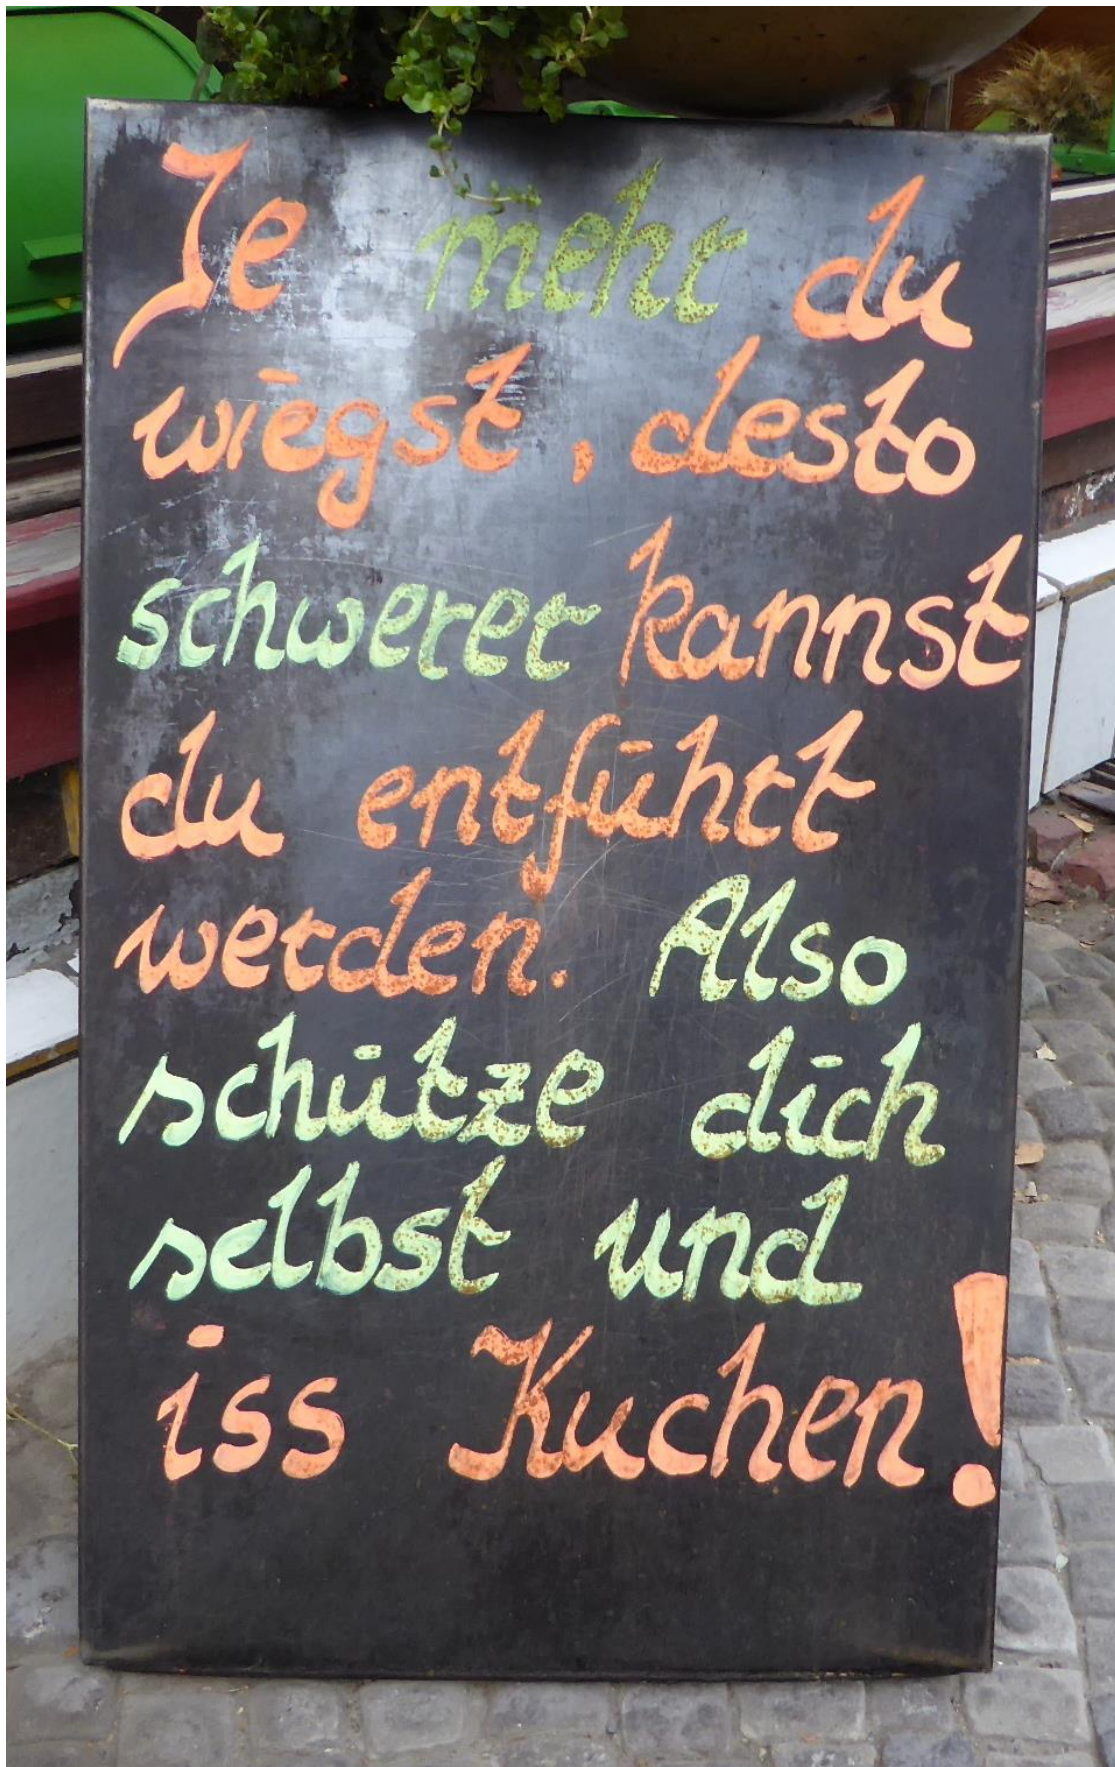 Je mehr du
wiegst, desto
schwerer kannst
du entführt
werden. Also
schütze dich
selbst und
iss Kuchen!